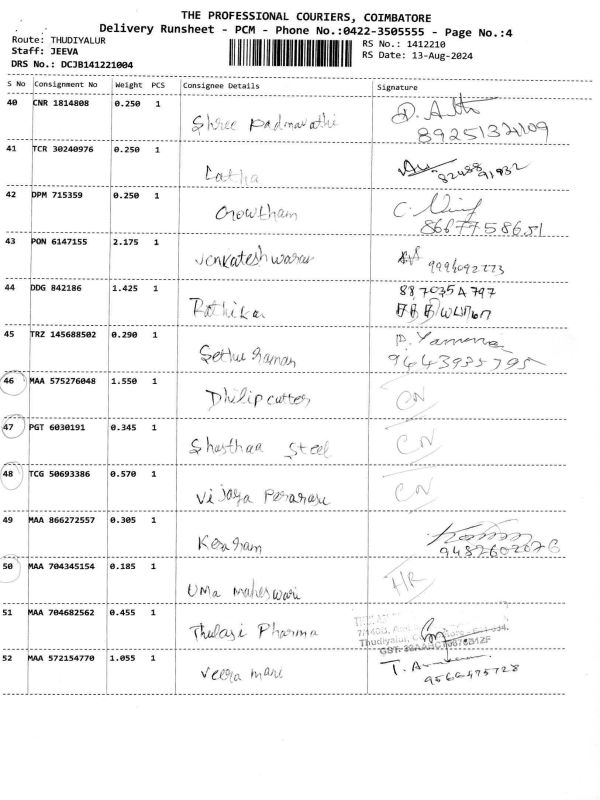 THE PROFESSIONAL COURIERS, COIMBATORE
Delivery Runsheet - PCM - Phone No.:0422-3505555 - Page No.:4
Route: THUDIYALUR
RS No.: 1412210
Staff: JEEVA
RS Date: 13-Aug-2024
DRS No.: DCJB141221004
S No Consignment No Weight PCS Consignee Details Signature
40 CNR 1814808 0.250 1
Shree Padmavathi
8925132109
41 TCR 30240976 0.250 1
Latha
82488 91932
42 DPM 715359 0.250 1
Gowtham C.
8667758651
43 PON 6147155 2.175 1
Venkateshwaran
9994092773
44 DDG 842186 1.425 1
887035A797
Rathika
45 TRZ 145688502 0.290 1
P. Yamuna
Sethu Raman
9443935795
46 MAA 575276048 1.550 1
Dhilip cutters CN
47 PGT 6030191 0.345 1
Shasthaa Steel CN
48 TCG 50693386 0.570 1
Vijaya CN
49 MAA 866272557 0.305 1
Kesaram
9487602676
50 MAA 704345154 0.185 1
Uma maheswari H/R
51 MAA 704682562 0.455 1
Thulasi Pharma
Thudiyalur,
GST:
52 MAA 572154770 1.055 1
Veera mani T.
9566475728